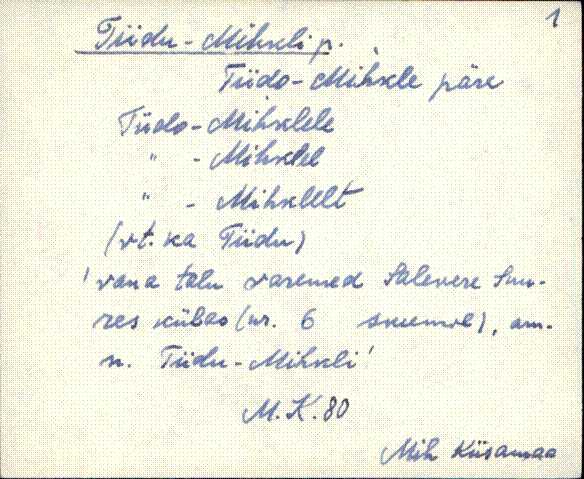 1
Tiidu-Mihkli p.
Tiido-Mihkle päre
Tiido-Mihklele
" -Mihklel
" -Mihklelt
(vt. ka Tiidu)
'vana talu varemed Salevere Suu-
res külas (nr. 6 skeemil), am-
n. Tiidu-Mihkli'
M.K. 80
Mih Kiisamaa